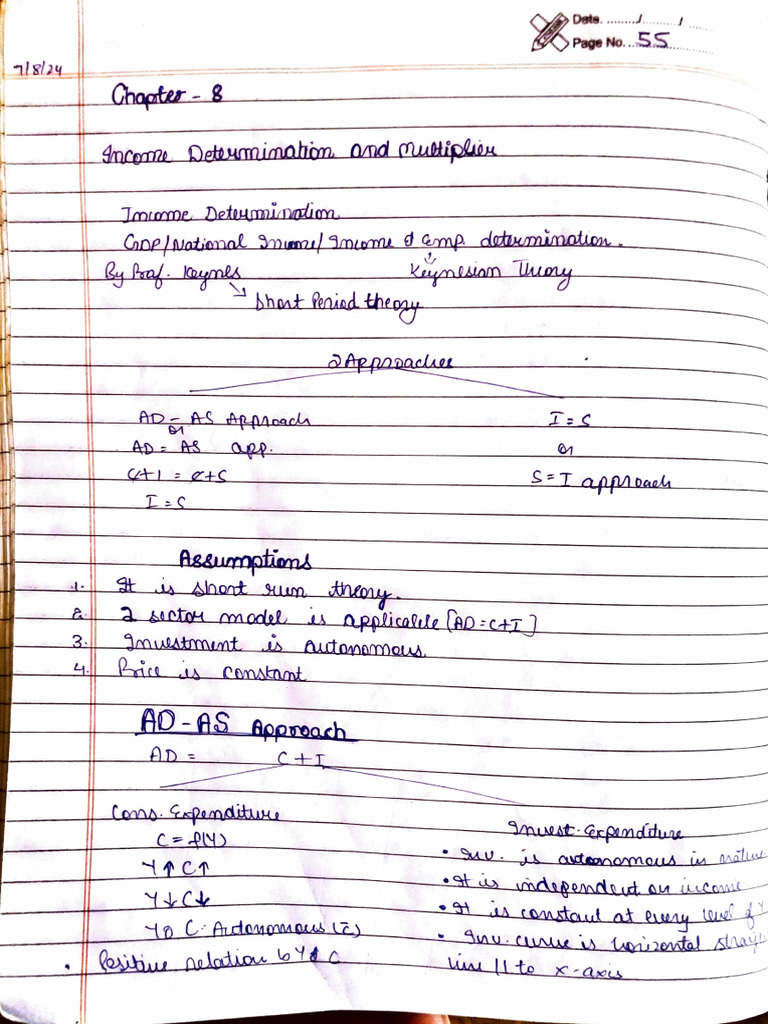 Date. ......./......./.......
Page No... 55
7/8/24
Chapter - 8
Income Determination and Multiplier
Income Determination
GDP/National Income/Income & Emp. determination.
By Prof. Keynes ↓ Keynesian Theory
↘ Short Period theory
2 Approaches
AD - AS Approach
or
AD = AS app.
C+I = C+S
I = S
I = S
or
S = I approach
Assumptions
1. It is short run theory.
2. 2 sector model is applicable [AD=C+I]
3. Investment is autonomous.
4. Price is constant
AD - AS Approach
AD = C + I
Cons. Expenditure
C = f(Y)
Y↑ C↑
Y↓ C↓
Y0 C. Autonomous (c̄)
• Positive relation b Y & C
Invest. Expenditure
• Inv. is autonomous in nature
• It is independent on income
• It is constant at every level of Y
• Inv. curve is horizontal straigh
line || to x-axis